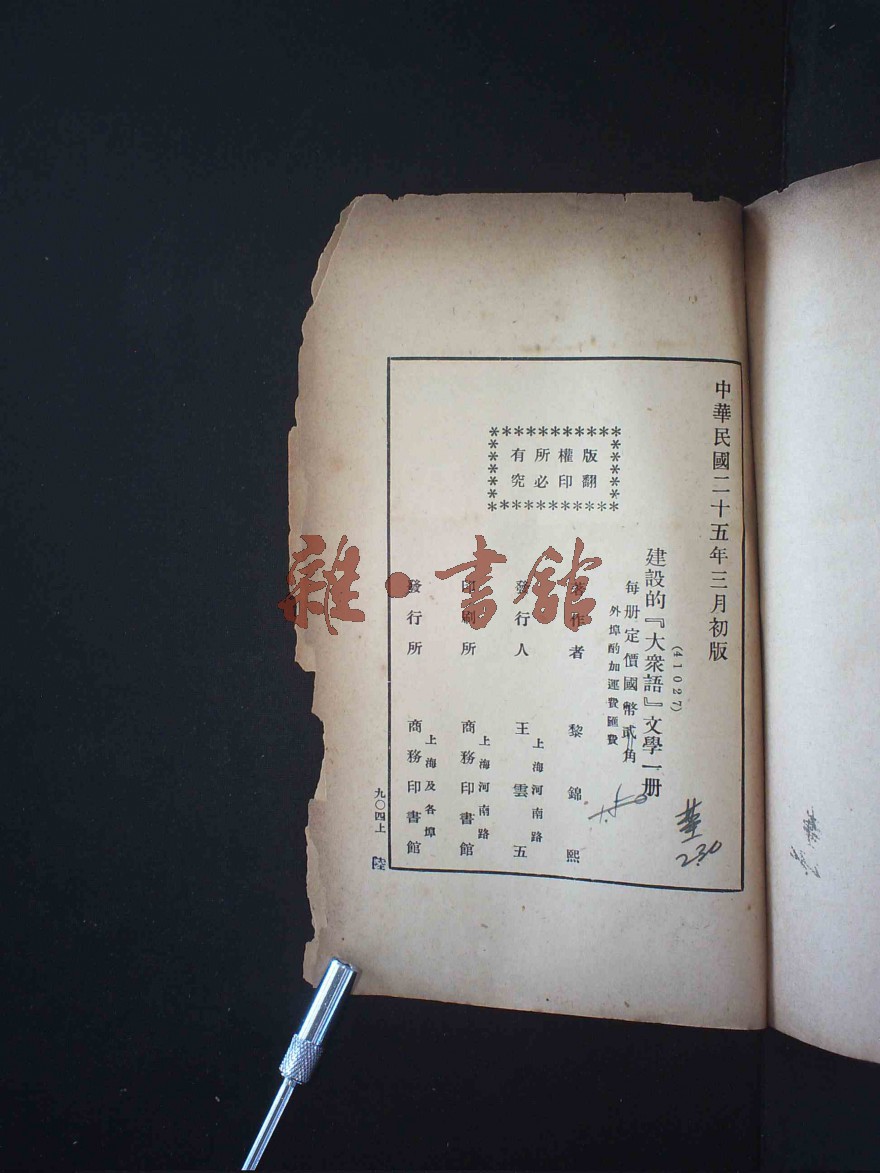 中華民國二十五年三月初版
(41027)
建設的『大衆語』文學一册
每册定價國幣貳角
外埠酌加運費匯費
版權所有
翻印必究
著作者 黎錦熙
上海河南路
發行人 王雲五
上海河南路
印刷所 商務印書館
上海及各埠
發行所 商務印書館
九〇四上
陸
230
雜·書館